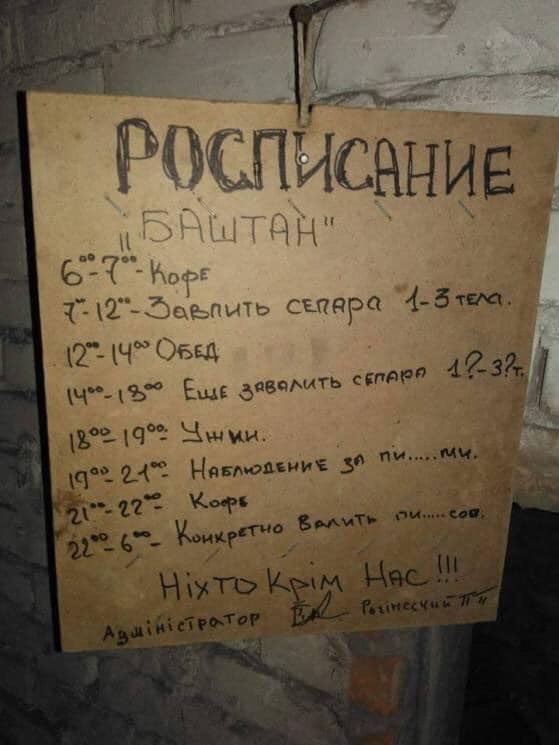 РОСПИСАНИЕ
"БАШТАН"
6⁰⁰-7⁰⁰- Кофе
7⁻-12⁰⁰- Завлить сепара 1-3 тела.
12⁰⁰-14⁰⁰ Обед
14⁰⁰-18⁰⁰ Еще завалить сепара 1?-3?т.
18⁰⁰-19⁰⁰: Ужин.
19⁰⁰-21⁰⁰: Наблюдение за пи.....ми.
21⁰⁰-22⁰⁰- Кофе
22⁰⁰-6⁰⁰- Конкретно Валить пи.....сов.
Ніхто Крім Нас !!!
Адміністратор